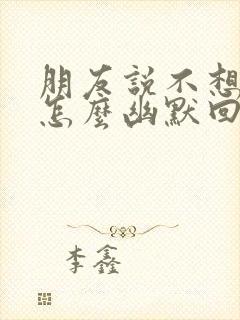 朋友説不想
怎麼幽默回
李鑫